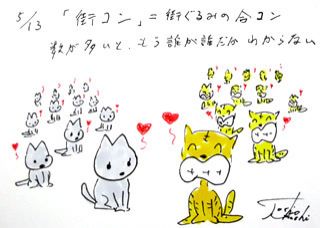 5/13 「街コン」＝街ぐるみの合コン
数が多いと、もう誰が誰だか わからない